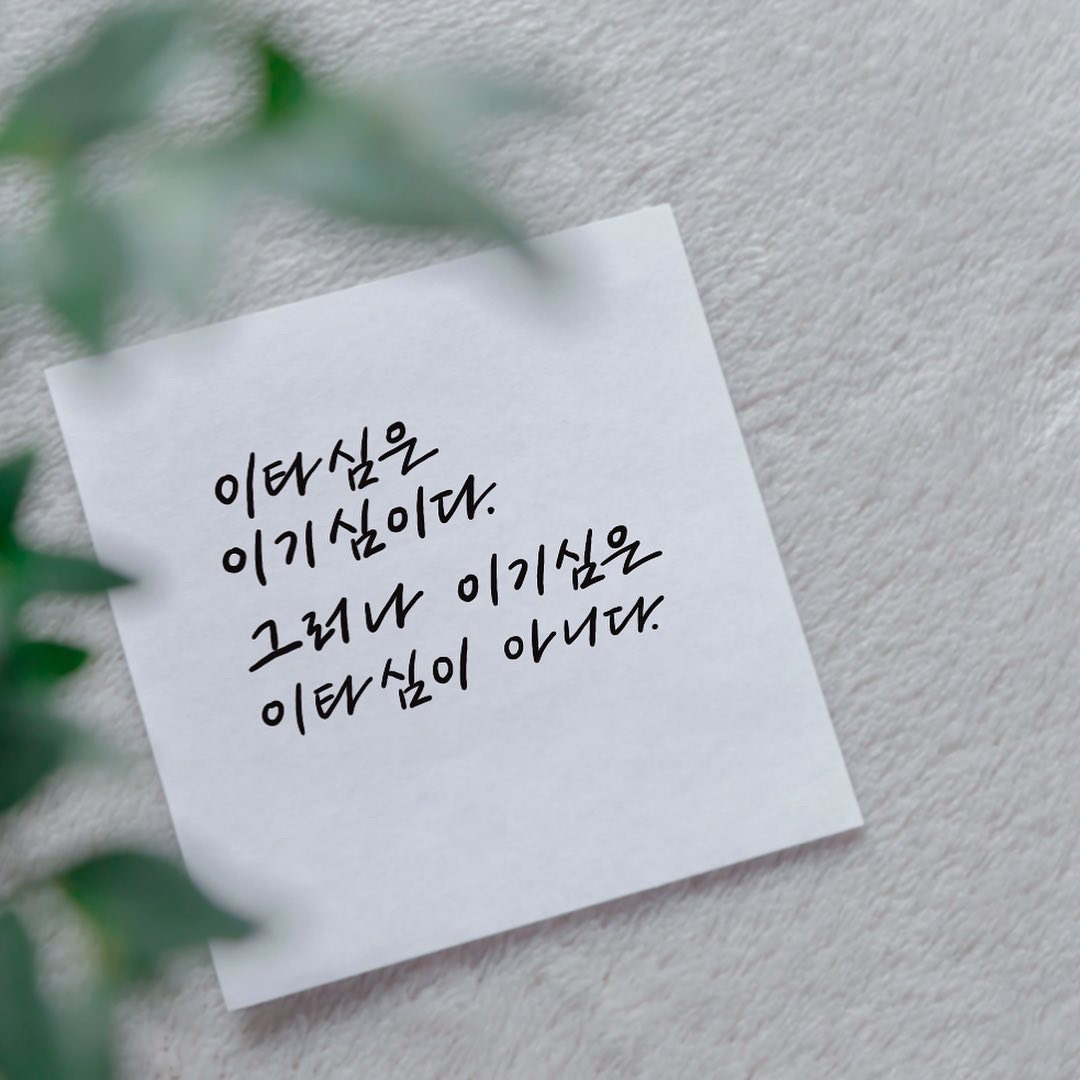 이타심은
이기심이다.
그러나 이기심은
이타심이 아니다.